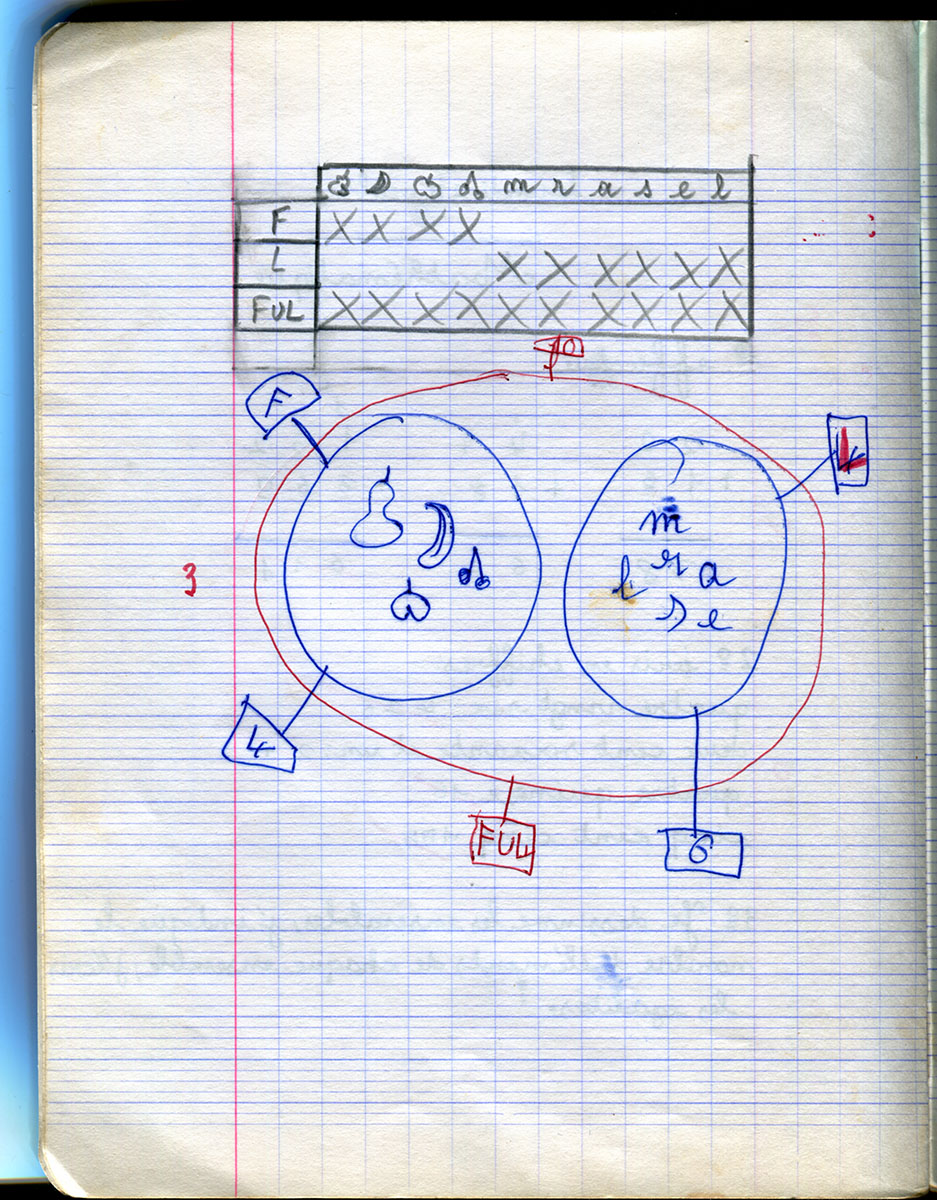 m r a s e l
F X X X X
L X X X X X X
FUL X X X X X X X X X X
10
F
L
m
l r a
s e
3
4
FUL
6